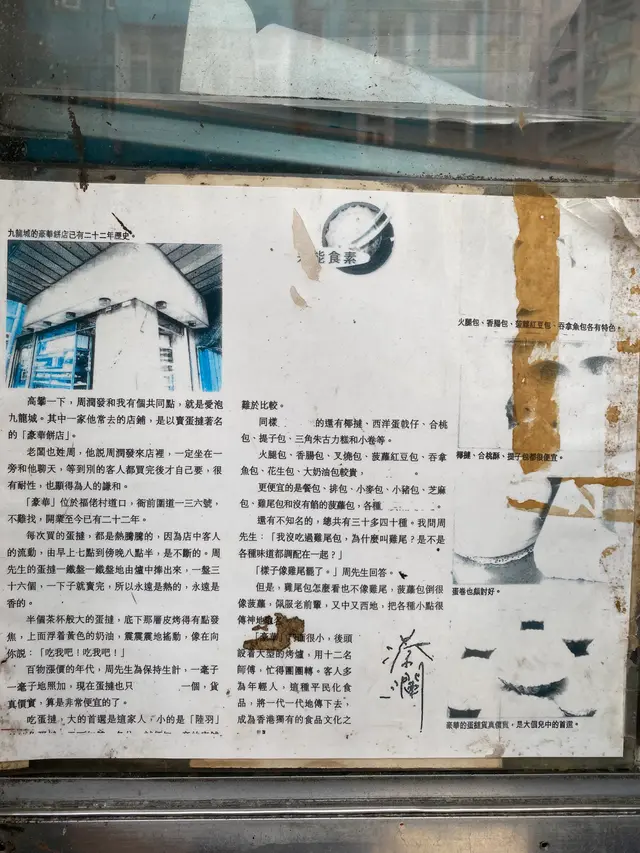 九龍城的豪華餅店已有二十二年歷史。
高攀一下，周潤發和我有個共同點，就是愛泡
九龍城。其中一家他常去的店鋪，是以賣蛋撻著名
的「豪華餅店」。
老闆也姓周，他說周潤發來店裡，一定坐在一
旁和他聊天，等到別的客人都買完後才自己要，很
有耐性，也顯得為人的謙和。
「豪華」位於福佬村道口，衙前圍道一三六號，
不難找，開業至今已有二十二年。
每次買的蛋撻，都是熱騰騰的，因為店中客人
的流動，由早上七點到傍晚八點半，是不斷的。周
先生的蛋撻一鐵盤一鐵盤地由爐中捧出來，一盤三
十六個，一下子就賣完，所以永遠是熱的，永遠是
香的。
半個茶杯般大的蛋撻，底下那層皮烤得有點發
焦，上面浮着黃色的奶油，震震震地搖動，像在向
你說：「吃我吧！吃我吧！」
百物漲價的年代，周先生為保持生計，一毫子
一毫子地照加，現在蛋撻也只 一個，貨
真價實，算是非常便宜的了。
吃蛋撻，大的首選是這家人 小的是「陸羽」
能食素
難於比較。
同樣 的還有椰撻、西洋蛋戟仔、合桃
包、提子包、三角朱古力糕和小卷等。
火腿包、香腸包、叉燒包、菠蘿紅豆包、吞拿
魚包、花生包、大奶油包較貴
更便宜的是餐包、排包、小麥包、小豬包、芝麻
包、雞尾包和沒有餡的菠蘿包，各種
還有不知名的，總共有三十多四十種。我問周
先生：「我沒吃過雞尾包，為什麼叫雞尾？是不是
各種味道都調配在一起？」
「樣子像雞尾罷了。」周先生回答。
但是，雞尾包怎麼看也不像雞尾，菠蘿包倒很
像菠蘿，佩服老前輩，又中又西地，把各種小點很
傳神地
「豪華」 很小，後頭
設着大型的烤爐，用十二名
師傅，忙得團團轉。客人多
為年輕人，這種平民化食
品，將一代一代地傳下去，
成為香港獨有的食品文化之
蔡瀾
火腿包、香腸包、菠蘿紅豆包、吞拿魚包各有特色。
椰撻、合桃酥、提子包都很便宜。
蛋卷也蠻好。
豪華的蛋撻貨真價實，是大個兒中的首選。